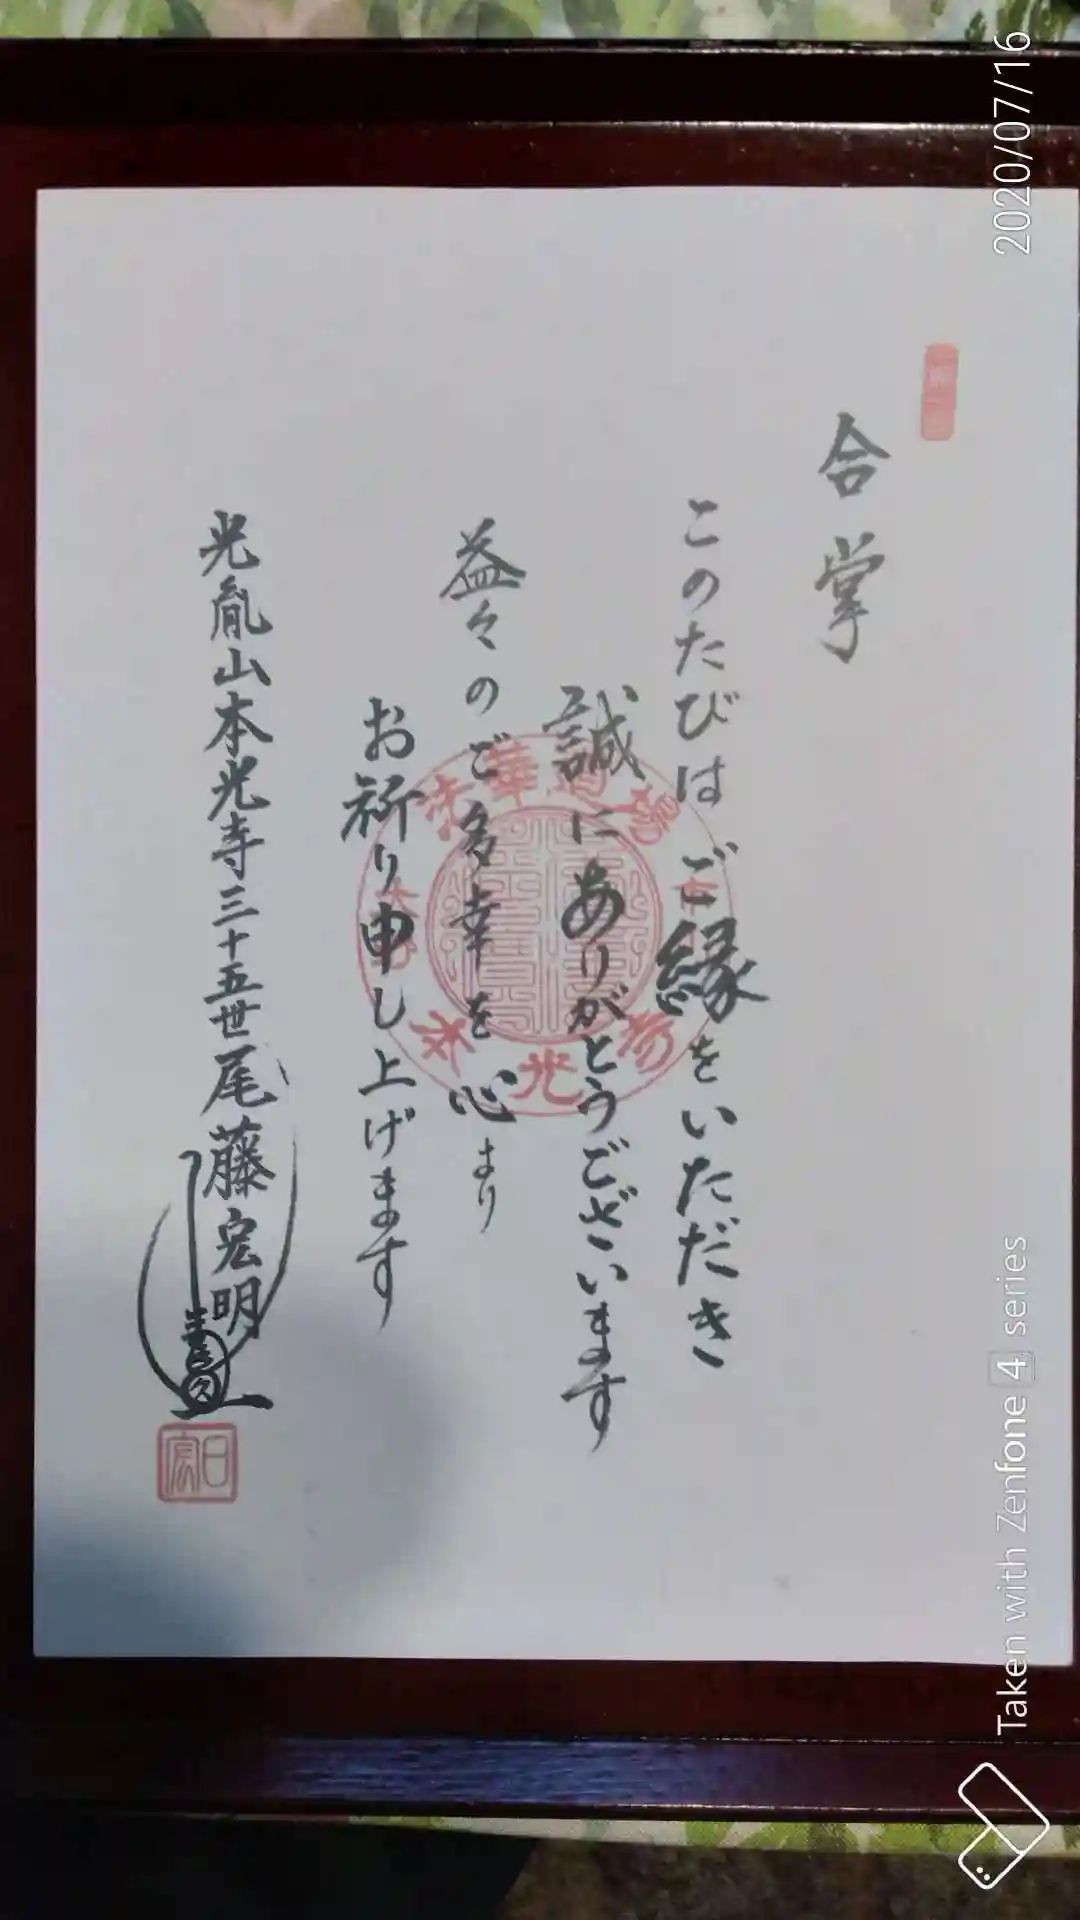 合掌
このたびはご縁をいただき
誠にありがとうございます
益々のご多幸を心より
お祈り申し上げます
光胤山本光寺三十五世尾藤宏明
日宏
法華道場
本光寺
2020/07/16
Taken with Zenfone 4 series